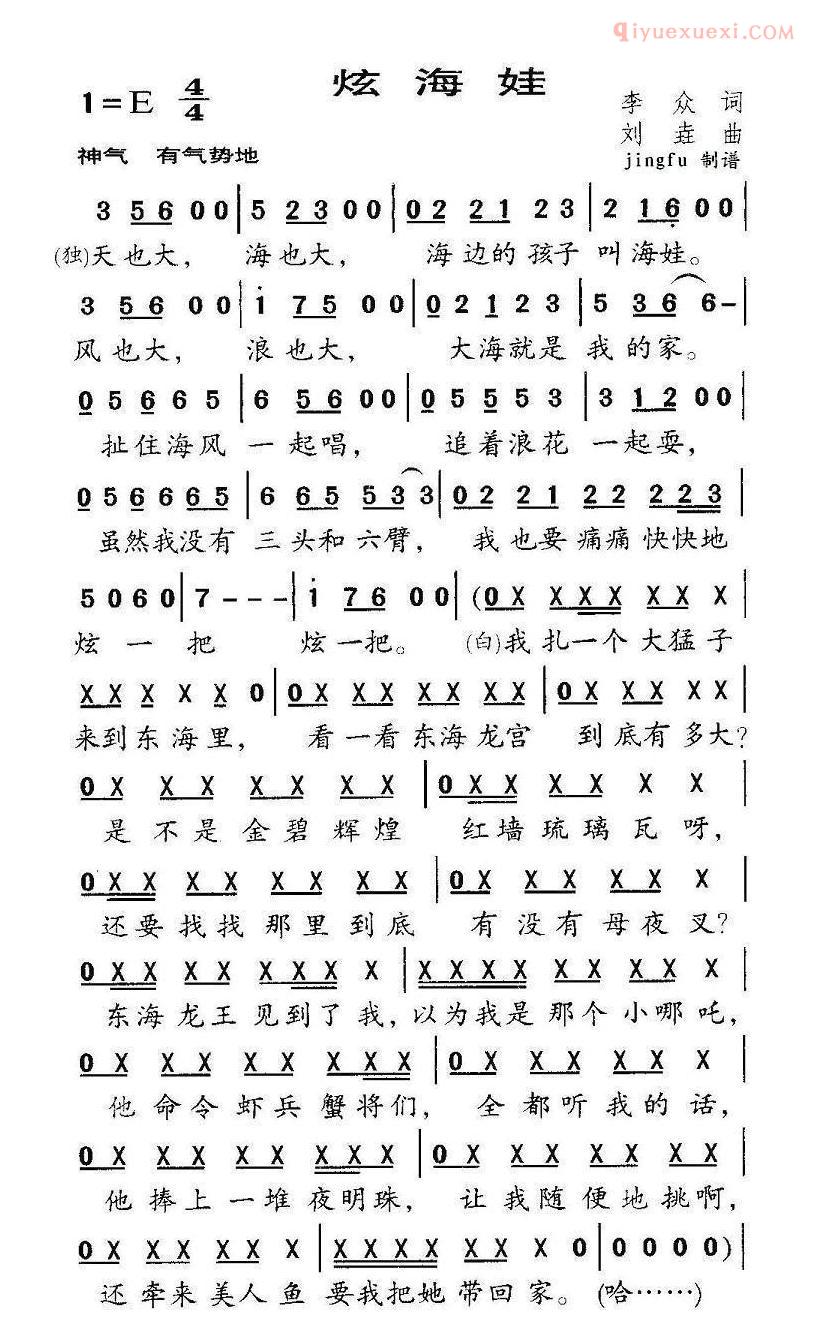 qiyuexuexi.COM
炫海娃
1=E 4/4
李众 词
刘垚 曲
神气 有气势地
jingfu 制谱
3 5 6 0 0 | 5 2 3 0 0 | 0 2 2 1 2 3 | 2 1 6 0 0 |
(独)天也大， 海也大， 海边的孩子叫海娃。
3 5 6 0 0 | i 7 5 0 0 | 0 2 1 2 3 | 5 3 6 6 – |
风也大， 浪也大， 大海就是我的家。
0 5 6 6 5 | 6 5 6 0 0 | 0 5 5 5 3 | 3 1 2 0 0 |
扯住海风一起唱， 追着浪花一起耍，
0 5 6 6 6 6 5 | 6 6 5 5 3 3 | 0 2 2 1 2 2 2 2 3 |
虽然我没有三头和六臂， 我也要痛痛快快地
5 0 6 0 | 7 - - - | i 7 6 0 0 | (0 X X X X X X X X
炫一把 炫一把。 (白)我扎一个大猛子
X X X X X 0 | 0 X X X X X X X | 0 X X X X X |
来到东海里， 看一看东海龙宫 到底有多大？
0 X X X X X X X | 0 X X X X X X |
是不是金碧辉煌 红墙琉璃瓦呀，
0 X X X X X X X X | 0 X X X X X X |
还要找找那里到底 有没有母夜叉？
0 X X X X X X X X | X X X X X X X X X |
东海龙王见到了我，以为我是那个小哪吒，
0 X X X X X X X X | 0 X X X X X X |
他命令虾兵蟹将们， 全都听我的话，
0 X X X X X X X X | 0 X X X X X X X |
他捧上一堆夜明珠， 让我随便地挑啊，
0 X X X X X X | X X X X X X X 0 | 0 0 0 0 )
还牵来美人鱼 要我把她带回家。 (哈……)